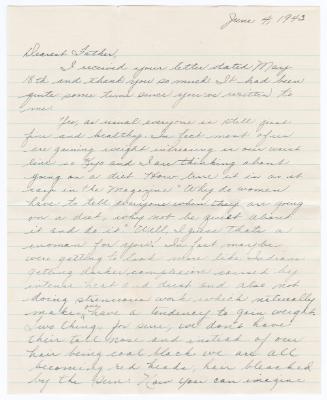 June 4, 1943
Dearest Father,
I received your letter dated May
18th and thank you so much. It had been
quite some time since you've written to
me.
Yes, as usual everyone is still just
fine and healthy. In fact most of us
are gaining weight increasing in our waist
line so and I are thinking about
going on a diet. "How ever" as in as it
says in the Magazine "Why do women
have to tell everyone when they are going
on a diet, why not be quiet about
it and do it." Well, I guess thats a
woman for you! In fact maybe
were getting to look more like Indians
getting darker complexion caused by
intense heat and dust and also not
doing strenuous work which naturally
makes have a tendency to gain weight.
Two things for sure, we don't have
their tall nose and instead of our
hair being coal black we are all
becoming red heads, hair bleached
by the sun! Now you can imagine